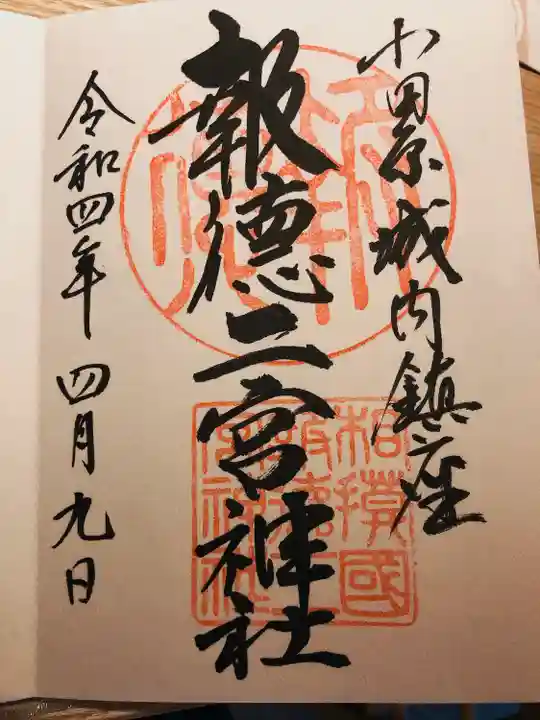 小田原城内鎮座
報徳二宮神社
令和四年 四月九日
相模國
報徳二宮神社